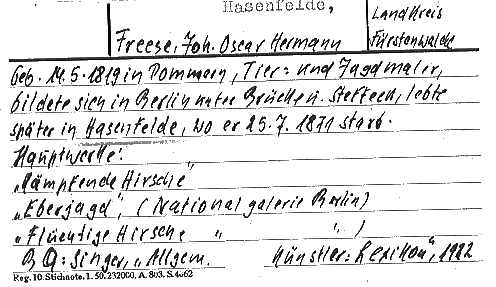 Hasenfelde,
Landkreis
Freese, Joh. Oscar Hermann
Fürstenwalde
Geb. 14.5.1819 in Pommern, Tier= und Jagdmaler,
bildete sich in Berlin unter Brücke u. Steffeck, lebte
später in Hasenfelde, wo er 25.7.1871 starb.
Hauptwerke:
„Kämpfende Hirsche"
„Eberjagd", (National galerie Berlin)
„Flüchtige Hirsche „ „ )
B Q: Singer, „Allgem. Künstler=Lexikon", 1922
Reg. 10. Stichnote. 1. 50. 232000. A. 803. S. 4662